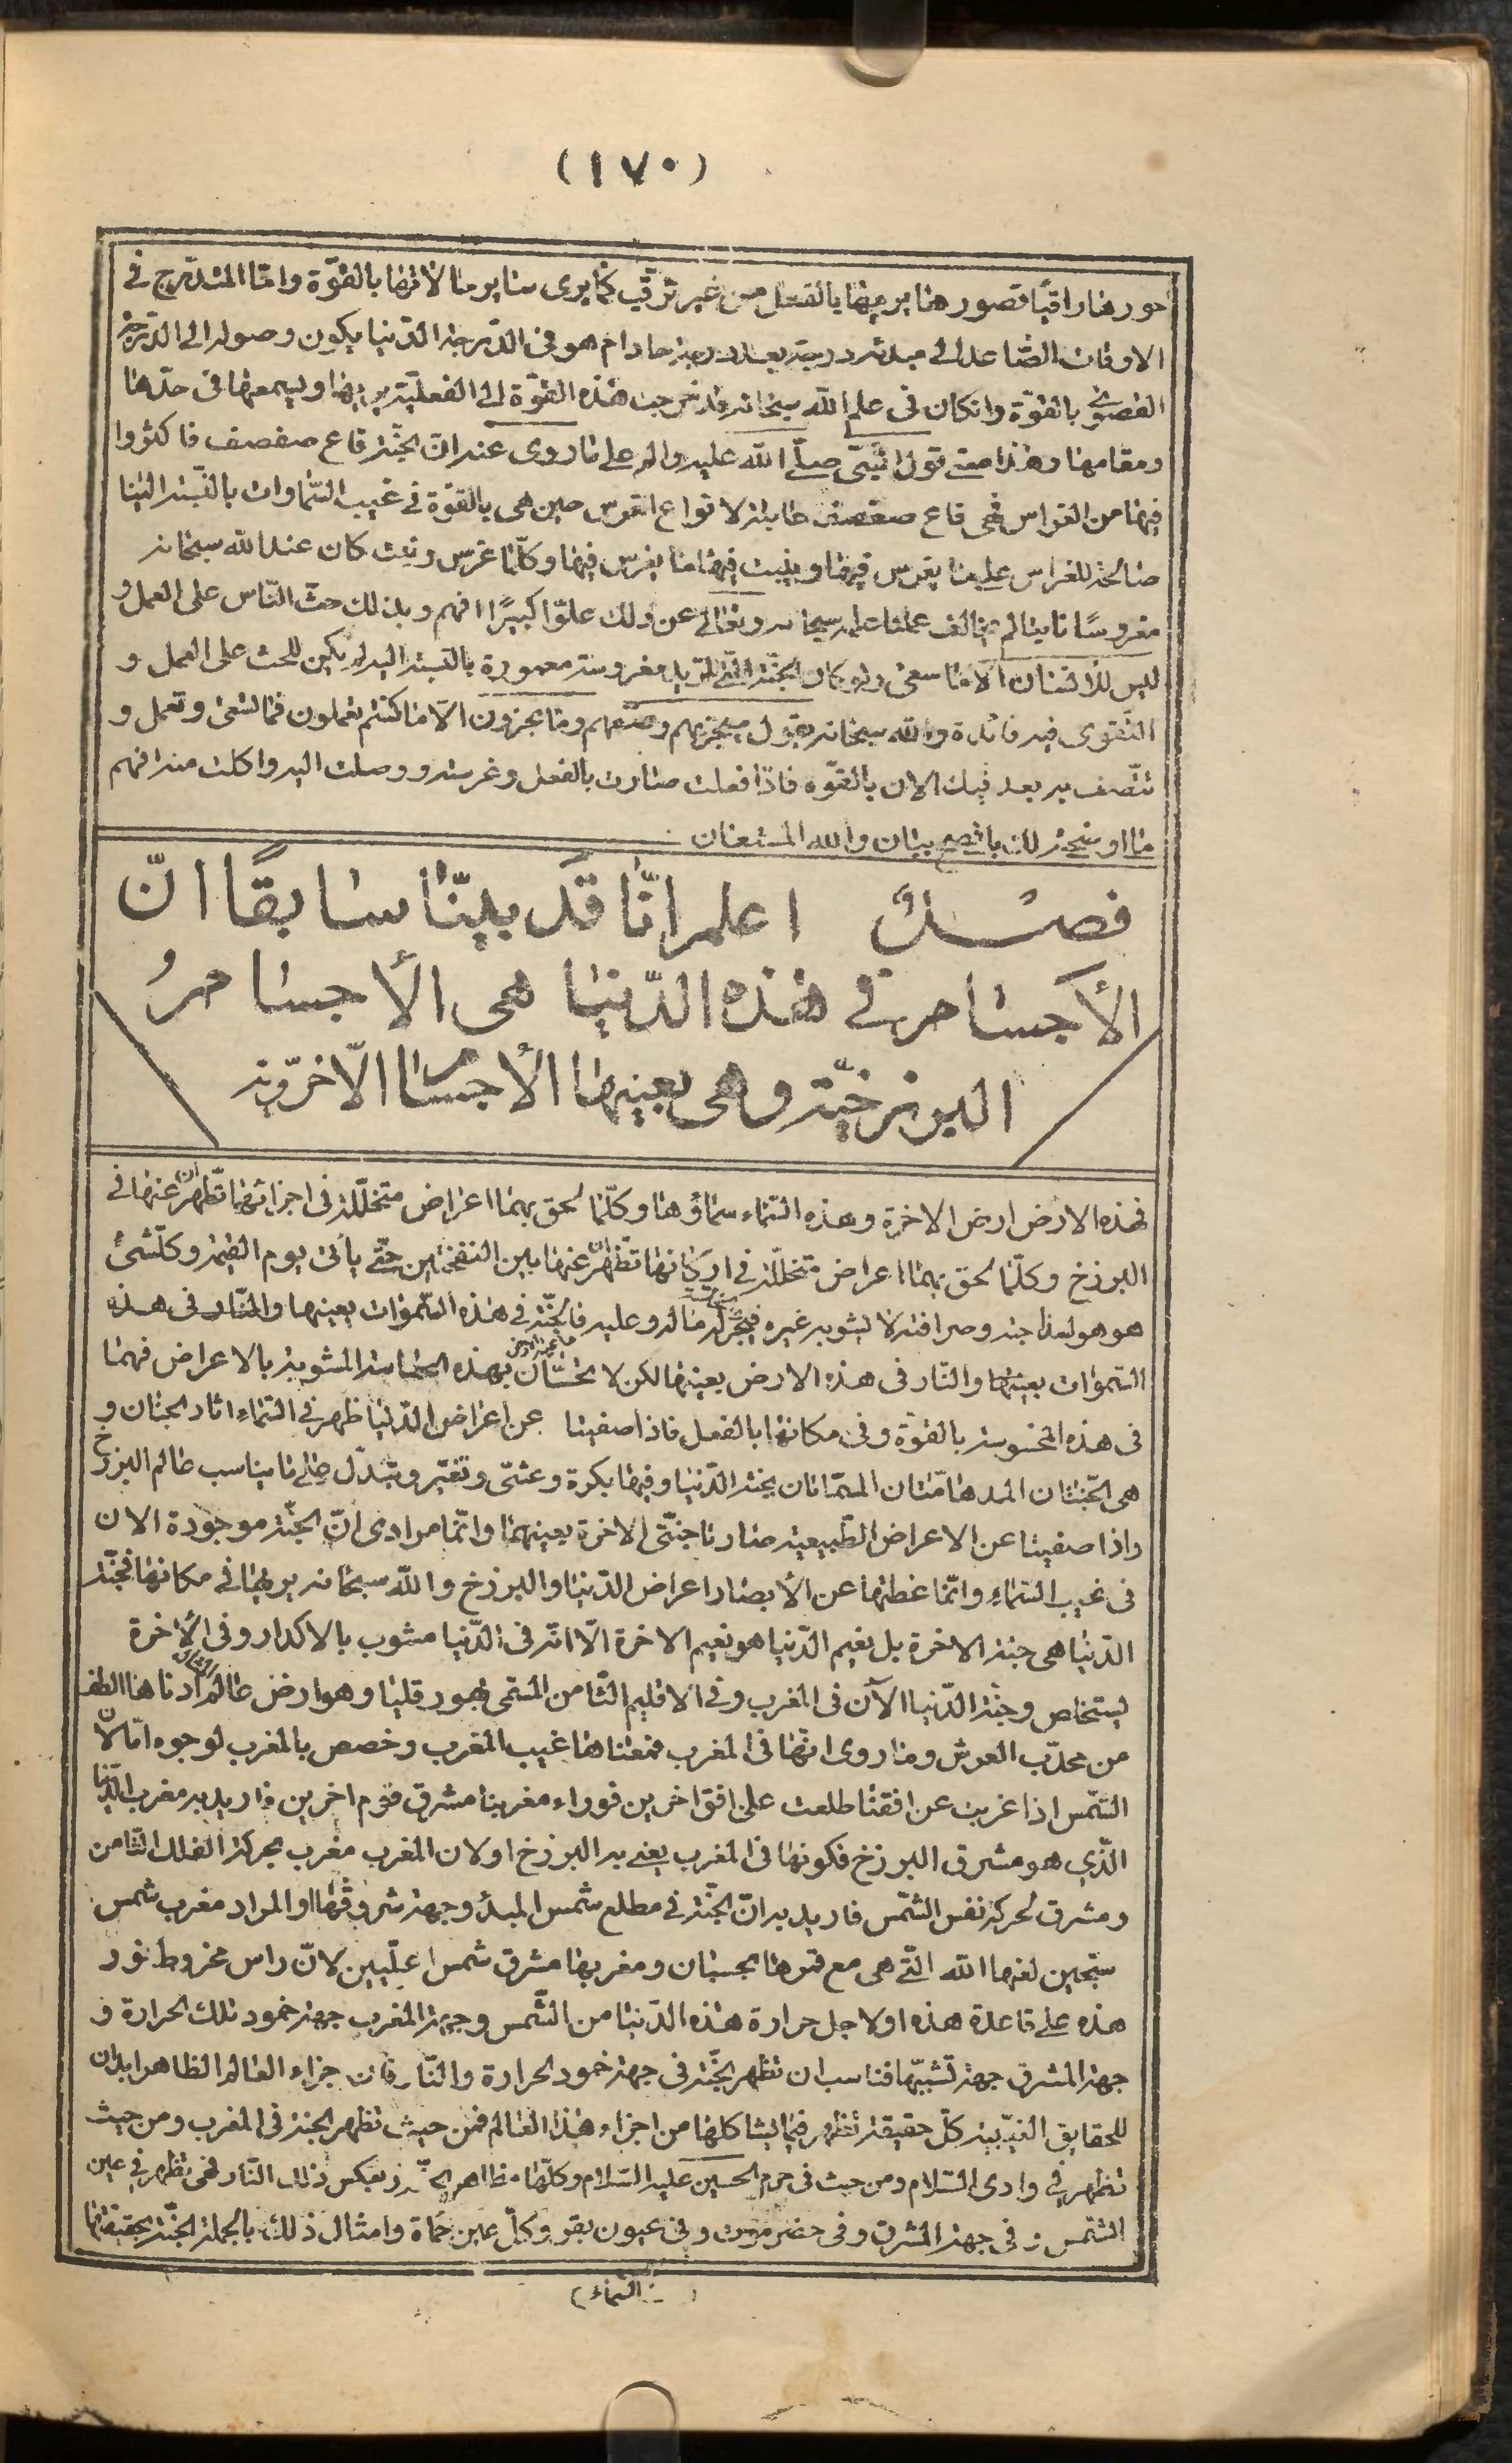 (١٧٠)
حورها راقيًا قصورها يريها بالفعل من غير ترقّب كما يرى ساير ما لا نرها بالقوّة وامّا المتدرّج فى
الاوقات الصّاعد الى مبدئه درجة بعد درجة مادام هو فى الدّرجة الدّنيا يكون وصوله الى الدّرجة
القصوى بالقوّة وان كان فى علم الله سبحانه قد خرجت هذه القوّة الى الفعليّة يريها ويسمعها فى حدّها
ومقامها وهذا معنى قول النّبىّ صلّى الله عليه واله على ما روى عنه انّ الجنّة قاع صفصف فاكثروا
فيها من الغراس فهى قاع صفصف قابلة لانواع الغرس حين هى بالقوّة فى غيب السّماوات بالنّسبة الينا
صالحة للغراس علينا يغرس فيها وينبت فيها ما يغرس فيها وكلّما غرس ونبت كان عند الله سبحانه
مغروسًا نابتا لم يخالف علمنا علمه سبحانه وتعالى عن ذلك علوّا كبيرًا افهم وبذلك حثّ النّاس على العمل و
ليس للانسان الّا ما سعى ولو كان الجنّة الّتى لزيد مغروسة معمورة بالنّسبة اليه لم يكن للحث على العمل و
التّقوى فيه فائدة والله سبحانه يقول سيجزيهم وصفهم وما تجزون الّا ما كنتم تعملون فما تسعى وتعمل و
تتّصف به بعد فيك الان بالقوّه فاذا فعلت صارت بالفعل وغرسته ووصلت اليه واكلت منه افهم
ما اوضحته لك باوضح بيان والله المستعان
فصـــل اعلم انّا قد بيّنّا سابقًا انّ
الأجسام فى هذه الدّنيا هى الأجسامُ
البرزخيّة وهى بعينها الأجسام الاخرويّة
فهذه الارض ارض الاخرة وهذه السّماء سماؤها وكلّما لحق بهما اعراض متخلّلة فى اجزائهما تطهران عنها فى
البرزخ وكلّما لحق بهما اعراض متخلّلة فى اركانهما تطهران عنها بين النفختين حتّى يأتى يوم القيمة وكلّشىء
هو هو لساذجته وصرافته لا يشوبه غيره فيخرج له ماله وعليه فالجنّة فى هذه السّموات بعينها والنّار فى هذه
السّموات بعينها والنّار فى هذه الارض بعينها لكن لا تحسّان بهذه الحاسة المشوبة بالاعراض فهما
فى هذه المحسوسة بالقوّة وفى مكانهما بالفعل فاذا صفيتا عن اعراض الدّنيا ظهر فى السّماء اثار الجنان و
هى الجنّتان المدهامّتان المسمّاتان بجنة الدّنيا وفيها بكرة وعشىّ وتغيّر وتبدّل على ما يناسب عالم البرزخ
واذا صفيتا عن الاعراض الطّبيعية صارتا جنّتى الاخرة بعينهما وانّما مرادى انّ الجنّة موجودة الان
فى غيب السّماء وانّما غطتها عن الأبصار اعراض الدّنيا والبرزخ والله سبحانه يريها فى مكانها فجنّة
الدّنيا هى جنة الاخرة بل نعيم الدّنيا هو نعيم الاخرة الّا انّه فى الدّنيا مشوب بالاكدار وفى الأخرة
يستخلص وجنّة الدّنيا الآن فى المغرب وفى الاقليم الثّامن المسمّى بهورقليا وهو ارض عالم المثال ادناها الطف
من محدّب العرش وما روى انّها فى المغرب فمعناها غيب المغرب وخصص بالمغرب لوجوه امّا لانّ
الشّمس اذا غربت عن افقنا طلعت على افق اخرين فوراء مغربنا مشرق قوم اخرين فاريد به مغرب الدّنيا
الّذى هو مشرق البرزخ فكونها فى المغرب يعنى به البرزخ او لان المغرب مغرب بحركة الفلك الثّامن
ومشرق لحركة نفس الشّمس فاريد به انّ الجنّة فى مطلع شمس المبدء وجهة شروقها او المراد مغرب شمس
سجّين لعنها الله الّتى هى مع قمرها بحسبان ومغربها مشرق شمس اعلّيين لانّ راس مخروط نور
هذه على قاعدة هذه او لاجل حرارة هذه الدّنيا من الشّمس وجهة المغرب جهة خمود تلك الحرارة و
جهة المشرق جهة تشبّبها فناسب ان تظهر الجنّة فى جهة خمود الحرارة والنّار فان جزاء العالم الظاهر ابدان
للحقايق الغيبيّة كلّ حقيقة تظهر فيما يشاكلها من اجزاء هذا العالم فمن حيث تظهر الجنة فى المغرب ومن حيث
تظهر فى وادى السّلام ومن حيث فى حرم الحسين عليه السّلام وكلّها مظاهر الجنّة وبعكس ذلك النّار فهى تظهر فى عين
الشّمس وفى جهة المشرق وفى حضرموت وفى عيون بقر وكلّ عين حمأة وامثال ذلك بالجملة الجنّة بحقيقتها
(السّماء)